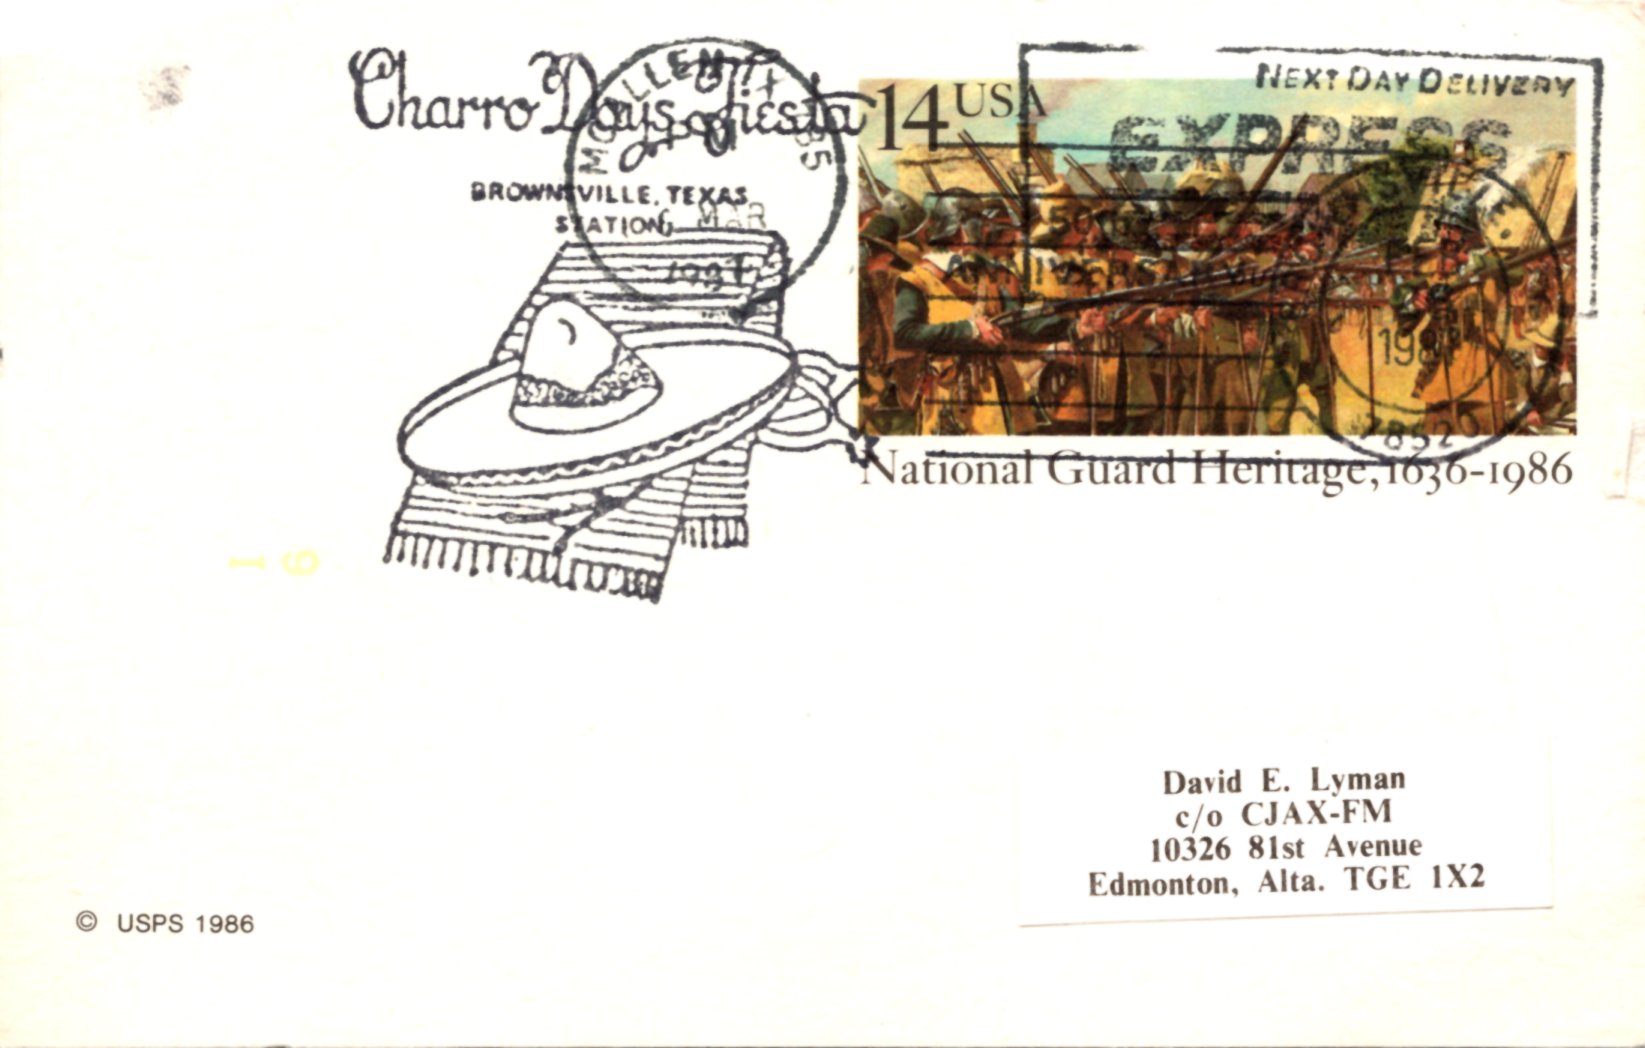 Charro Days Fiesta
BROWNSVILLE, TEXAS
STATION
MAR
14 USA
NEXT DAY DELIVERY
EXPRESS
National Guard Heritage, 1636-1986
David E. Lyman
c/o CJAX-FM
10326 81st Avenue
Edmonton, Alta. TGE 1X2
© USPS 1986